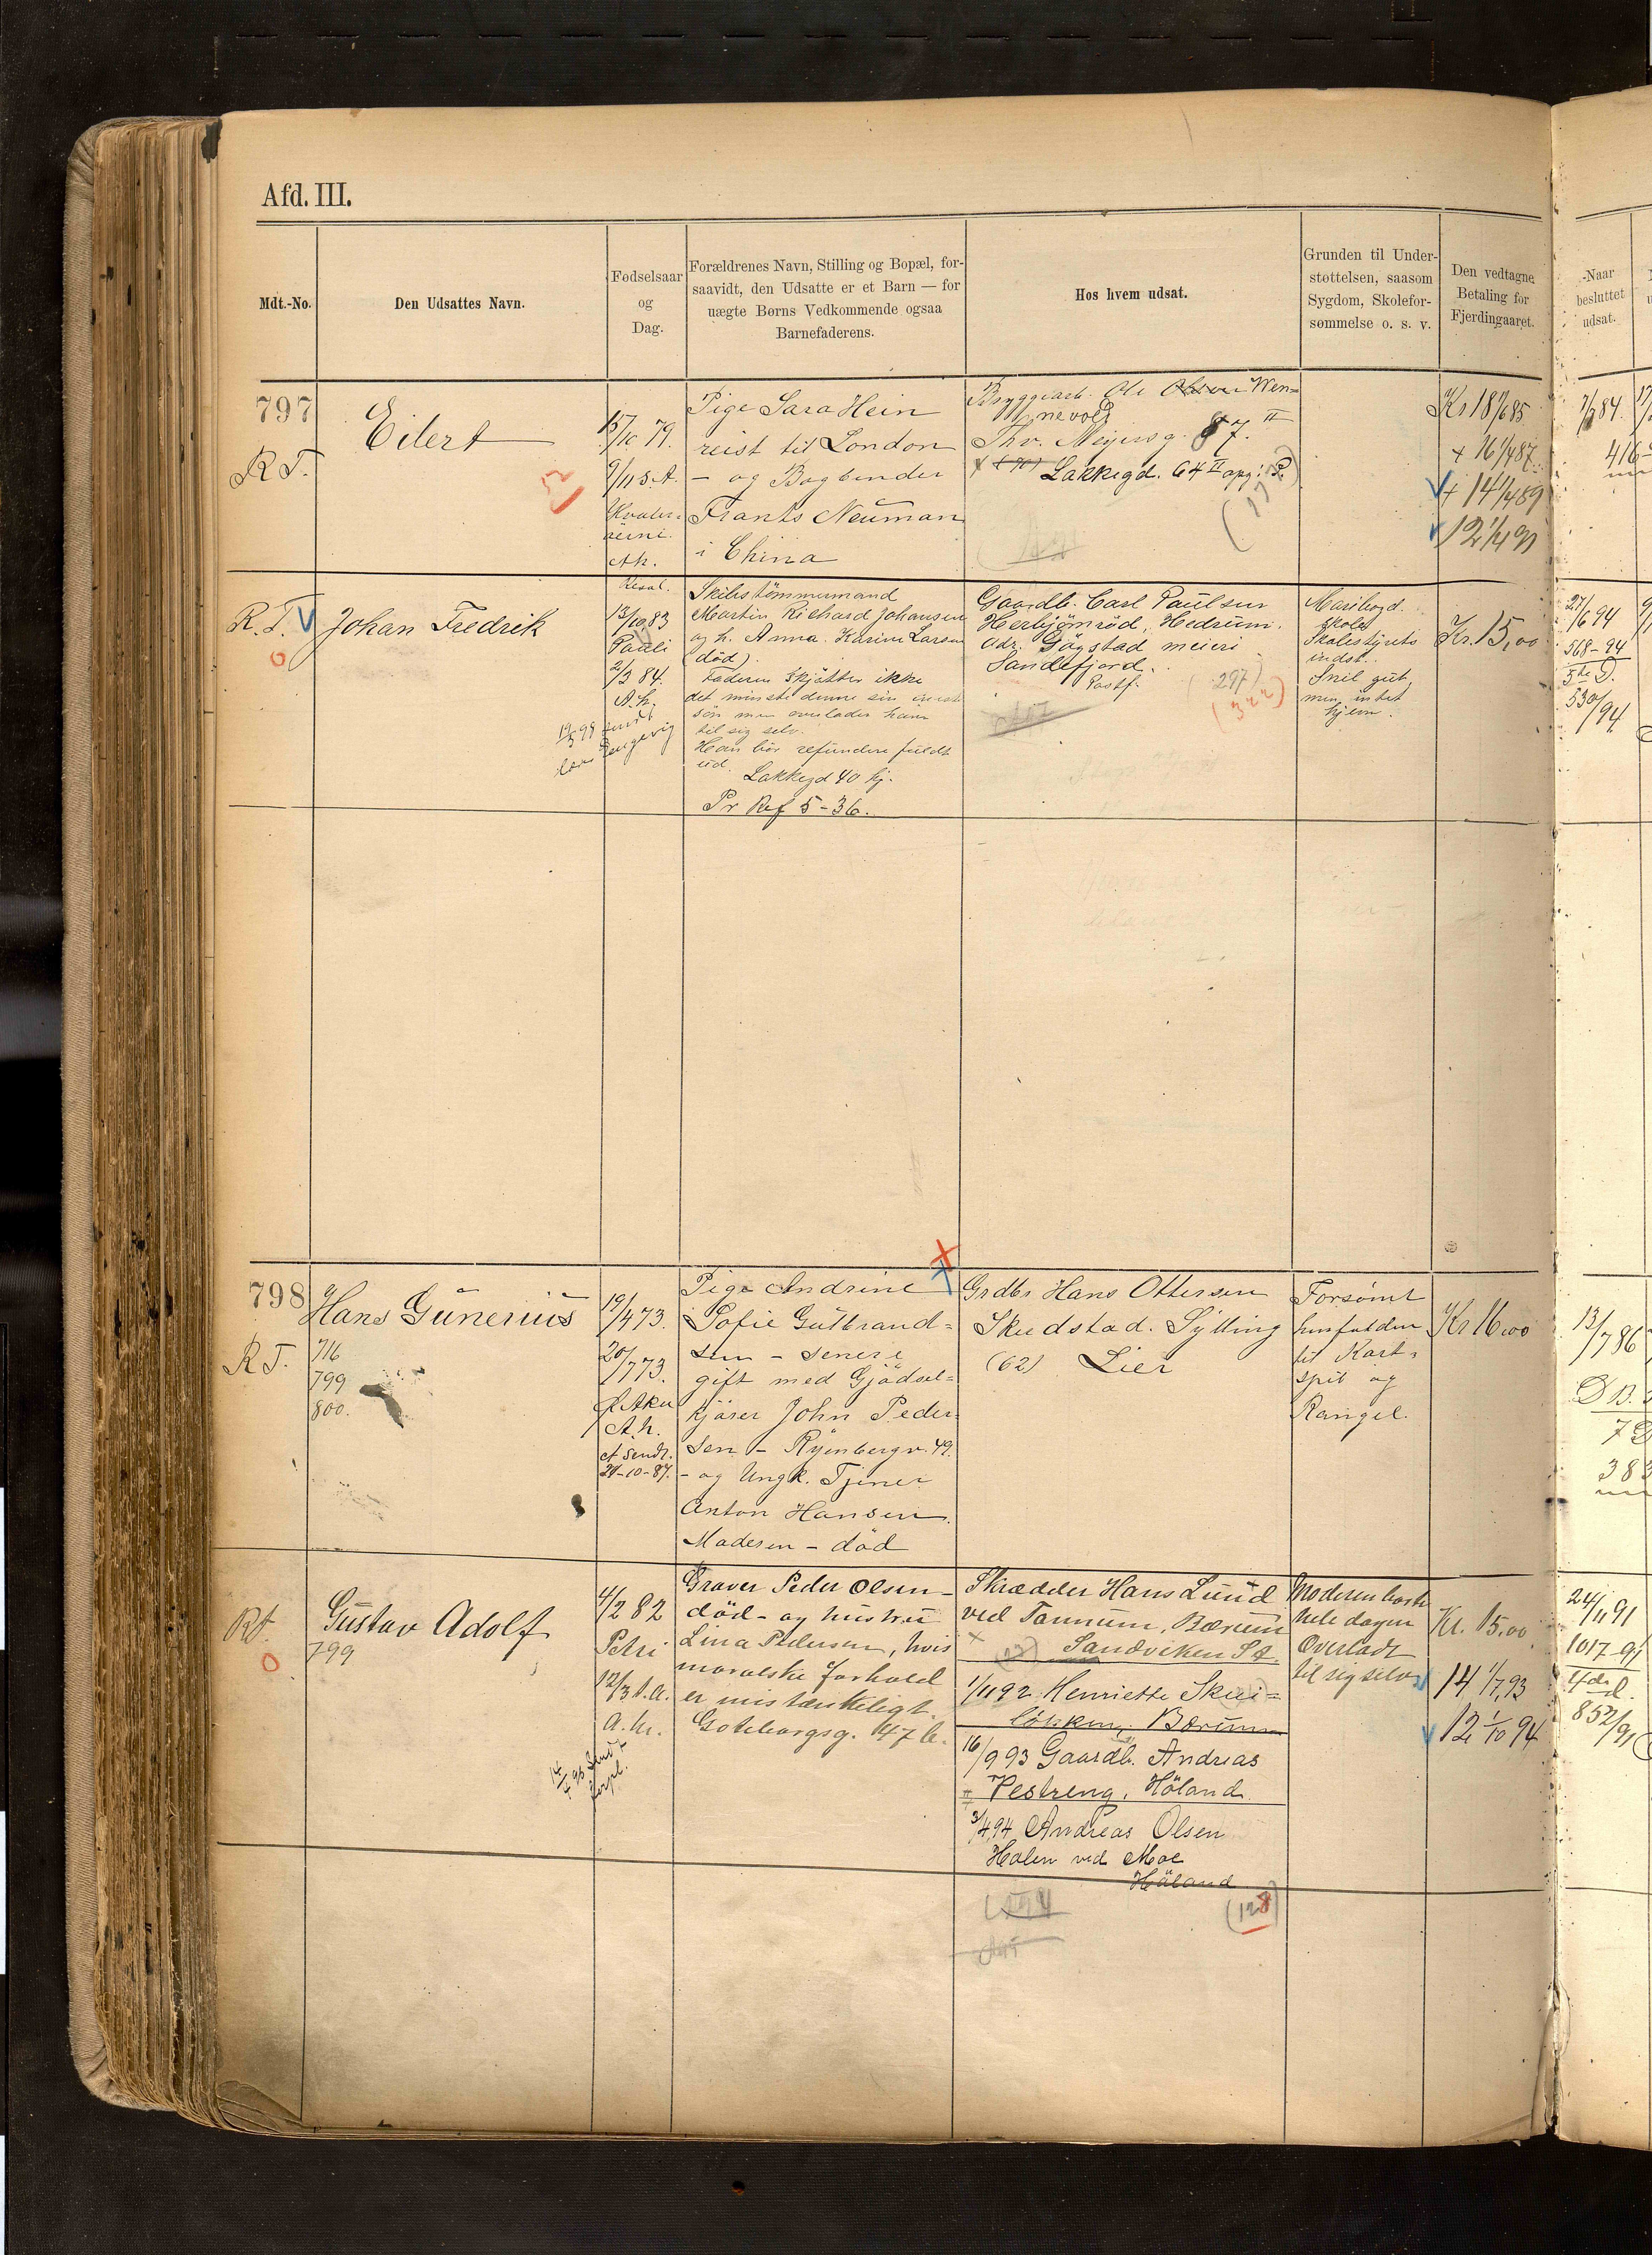 Afd. III.
Mdt.-No.
Den Udsattes Navn.
Fødselsaar
og
Dag.
Forældrenes Navn, Stilling og Bopæl, for-
saavidt, den Udsatte er et Barn — for
uægte Børns Vedkommende ogsaa
Barnefaderens.
Hos hvem udsat.
Grunden til Under-
støttelsen, saasom
Sygdom, Skolefor-
sømmelse o. s. v.
Den vedtagne
Betaling for
Fjerdingaaret.
-Naar
besluttet
udsat.
797
R T.
Eilert
15/10 79.
9/11 s. A.
Ah.
Pige Sara Hein
reist til London
- og Bogbinder
Frants Neuman
i China
Bryggearb. Ole Olsen Wen=
nevold
Thv. Meyersg. 87. II
Lakkegd. 64 II opg: P.
Kr 18 1/6 85
+ 16 1/4 87
+ 14 1/4 89
12 1/4 90
7/7 84.
416
R. T.
Johan Fredrik
13/10 83
Pauli
2/3 84.
A.h.
Skibstömmermand
Martin Richard Johansen
og h. Anna Karine Larsen
(död).
Faderen skjötter ikke
det minste denne sin
sön men overlader ham
til sig selv.
Han bör refundere fuldt
ud.
Lakkegd 40 kj.
Pr Ref 5-36.
Gaardb. Carl Paulsen
Herbjönröd, Hedrum.
Adr. Gögstad meieri
Sandefjord.
Postf.
(297)
(322)
Maribogd.
skoles
Skolestyrets
indst.
Snil gut,
men intet
hjem.
Kr. 15,00
27/6 94
568-94
5te D.
530/94
798
R T.
Hans Gunerius
716
799
800.
19/4 73.
20/7 73.
A.h.
at sendt.
21-10-87.
Pige Andrine
Sofie Gulbrand=
sen - senere
gift med Gjödsel=
kjörer John Peder=
sen - Ryenbergv. 49.
- og Ungk. Tjener
Anton Hansen.
Moderen - död
Grdbr Hans Ottersen
Skudstad. Sylling
(62) Lier
Forsömt
henfalden
til Kort=
spil og
Rangel.
Kr 16,00
13/7 86
Rt.
Gustav Adolf
799
4/2 82
Petri
12/3 s.a.
A.h.
Graver Peder Olsen -
död - og hustru
Lina Pedersen, hvis
moralske forhold
er mistænkeligt.
Goteborgsg. 147 b.
Skrædder Hans Lund
ved Tannum, Bærum
Sandviken St.
1/11 92 Henriette Skui=
lökken, Bærum
16/9 93 Gaardb. Andreas
Vestreng, Höland
3/4 94 Andreas Olsen
Holen ved Moe
Höland
(128)
Moderen borte
hele dagen
Overladt
til sig selv.
Kr. 15,00
14 1/7 93
12 1/10 94
24/11 91
1017-91
4de d.
852/91